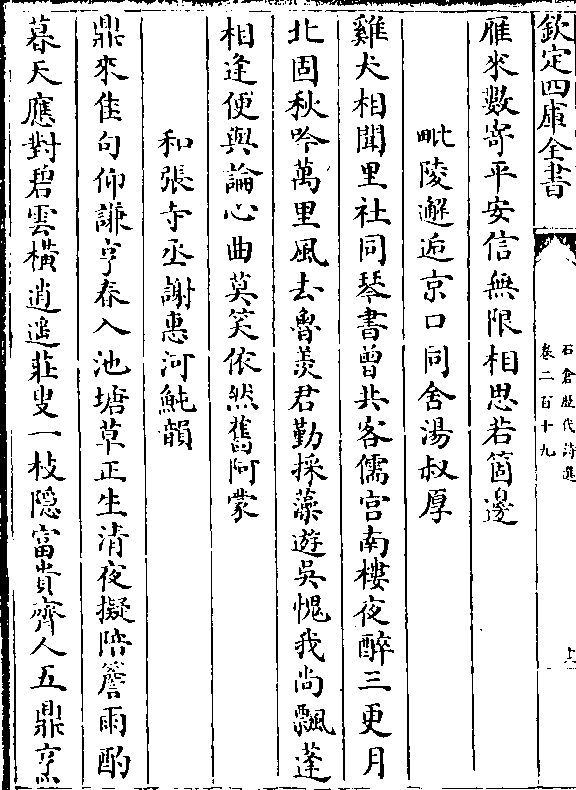 欽定四庫全書
石倉歷代詩選
卷二百十九
上
雁來數寄平安信無限相思若箇邊
毗陵邂逅京口同舍湯叔厚
雞犬相聞里社同琴書曾共客儒宫南樓夜醉三更月
北固秋吟萬里風去魯羨君勤採藻遊吳愧我尚飄蓬
相逢便與論心曲莫笑依然舊阿蒙
和張寺丞謝惠河魨韻
鼎來佳句仰謙亨春入池塘草正生清夜擬陪簷雨酌
暮天應對碧雲橫逍遥莊叟一枝隠富貴齊人五鼎烹